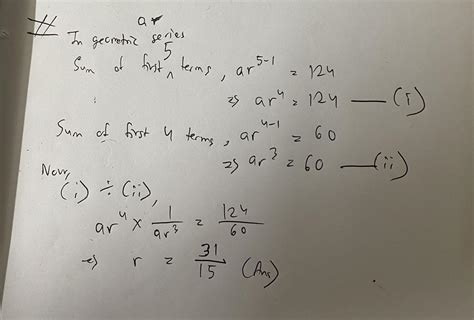 ar
In geometric series
Sum of first 5 terms, ar^5-1 = 124
⇒ ar^4 = 124 — (i)
Sum of first 4 terms, ar^4-1 = 60
⇒ ar^3 = 60 — (ii)
Now,
(i) ÷ (ii),
ar^4 × 1/ar^3 = 124/60
⇒ r = 31/15 (Ans)